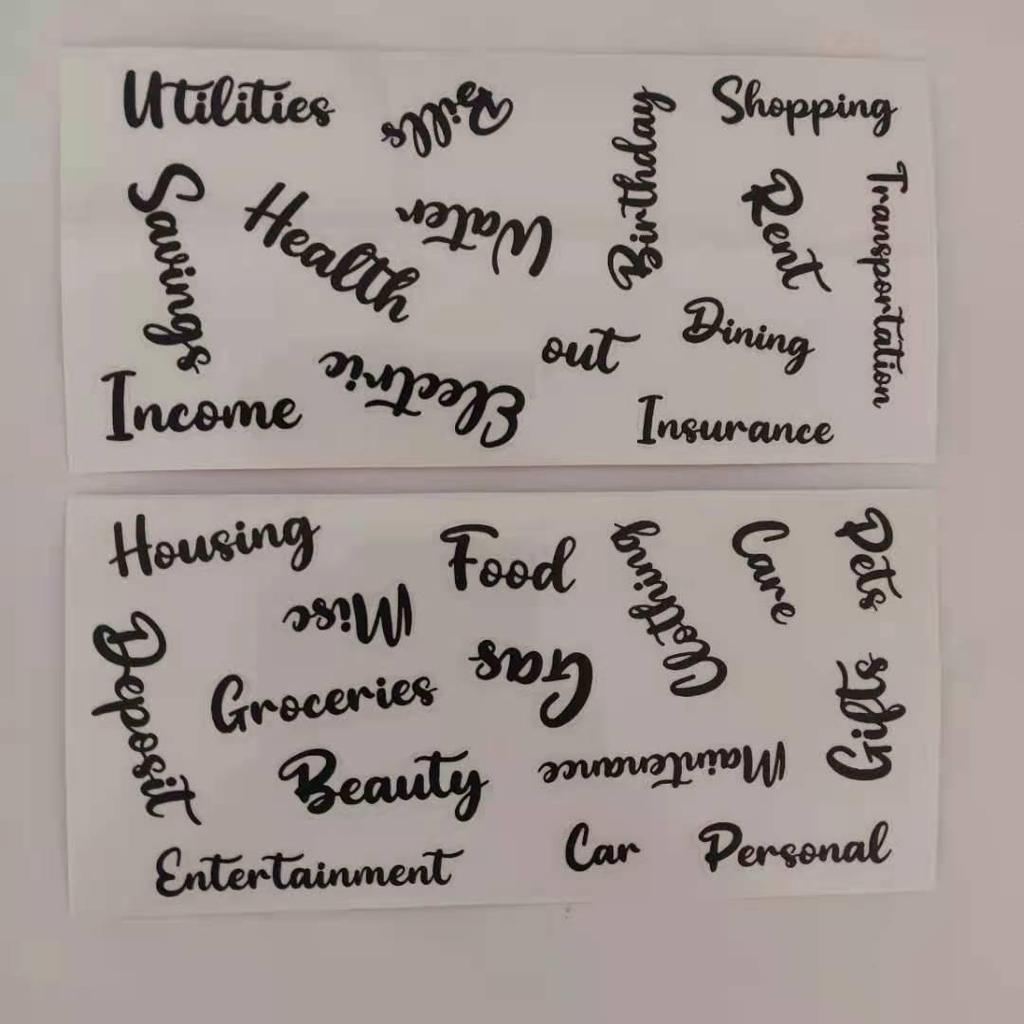 Utilities
Bills
Birthday
Shopping
Savings
Health
Water
Rent
Transportation
Electric
out
Dining
Income
Insurance
Housing
Food
Clothing
Care
Pets
Misc
Deposit
Groceries
Gas
Gifts
Beauty
Maintenance
Entertainment
Car
Personal